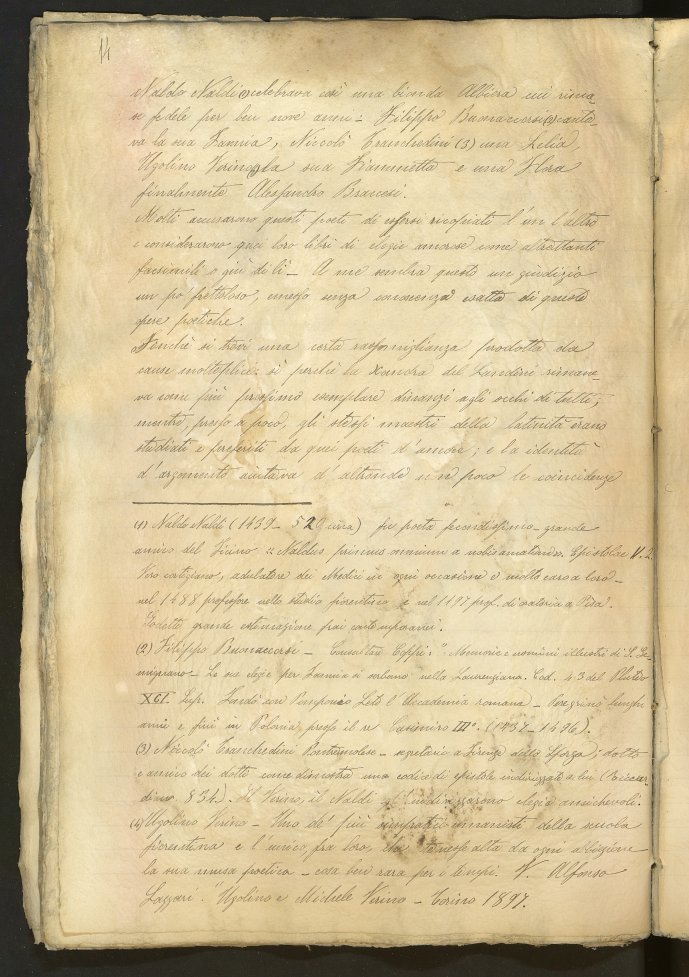 14
Naldo Naldi (1) celebrava così una bionda Albiera cui rima-
se fedele per ben nove anni - Filippo Buonaccorsi (2) canta-
va la sua Fannia, Niccolò Tranchedini (3) una Lelia,
Ugolino Verino (4) la sua Fiammetta e una Flora
finalmente Alessandro Braccesi.
Molti accusarono questi poeti di essersi ricopiati l'un l'altro
e considerarono quei loro libri di elegie amorose come altrettanti
facsimili o giù di lì - A me sembra questo un giudizio
un po' frettoloso, emesso senza conoscenza esatta di queste
opere poetiche.
Benchè si trovi una certa rassomiglianza prodotta da
cause molteplici: sì perchè la Xandra del Landini rimane-
va come più prossimo esemplare dinanzi agli occhi di tutti;
mentre, presso a poco, gli stessi maestri della latinità erano
studiati e preferiti da quei poeti d'amore; e la identità
d'argomento aiutava d'altronde non poco le coincidenze
(1) Naldo Naldi (1439 - 520 circa) fu poeta fecondissimo - grande
amico del Ficino :: Naldus, primus omnium a nobis amatus Epistolae V. 2.
Vero cortigiano, adulatore dei Medici in ogni occasione è molto caro a loro -
nel 1488 professore nello studio fiorentino e nel 1497 prof. di oratoria a Pisa.
Godette grande estimazione frai contemporanei.
(2) Filippo Buonaccorsi - Consultare Coppi: "Memorie e uomini illustri di S. Ge-
mignano - Le sue elegie per Fannia si serbano nella Laurenziana. Cod. 43 del Pluteo
XCI Sup. Fondò con Pomponio Leto l'Accademia romana - Peregrinò lunghi
anni e finì in Polonia presso il re Casimiro III°. (1437 - 1496).
(3) Niccolò Tranchedini Pontremolese - segretario a Firenze dello Sforza; dotto
e amico dei dotti come dimostra un codice di epistole indirizzate a lui (Riccar-
diano 834). Il Verino, il Naldi gl'indirizzarono elegie amichevoli.
(4) Ugolino Verino - Uno de' più simpatici umanisti della scuola
fiorentina e l'unico, fra loro, che tenesse alta da ogni abiezione
la sua musa poetica - cosa ben rara per i tempi. V. Alfonso
Lazzari. "Ugolino e Michele Virino - Torino 1897.